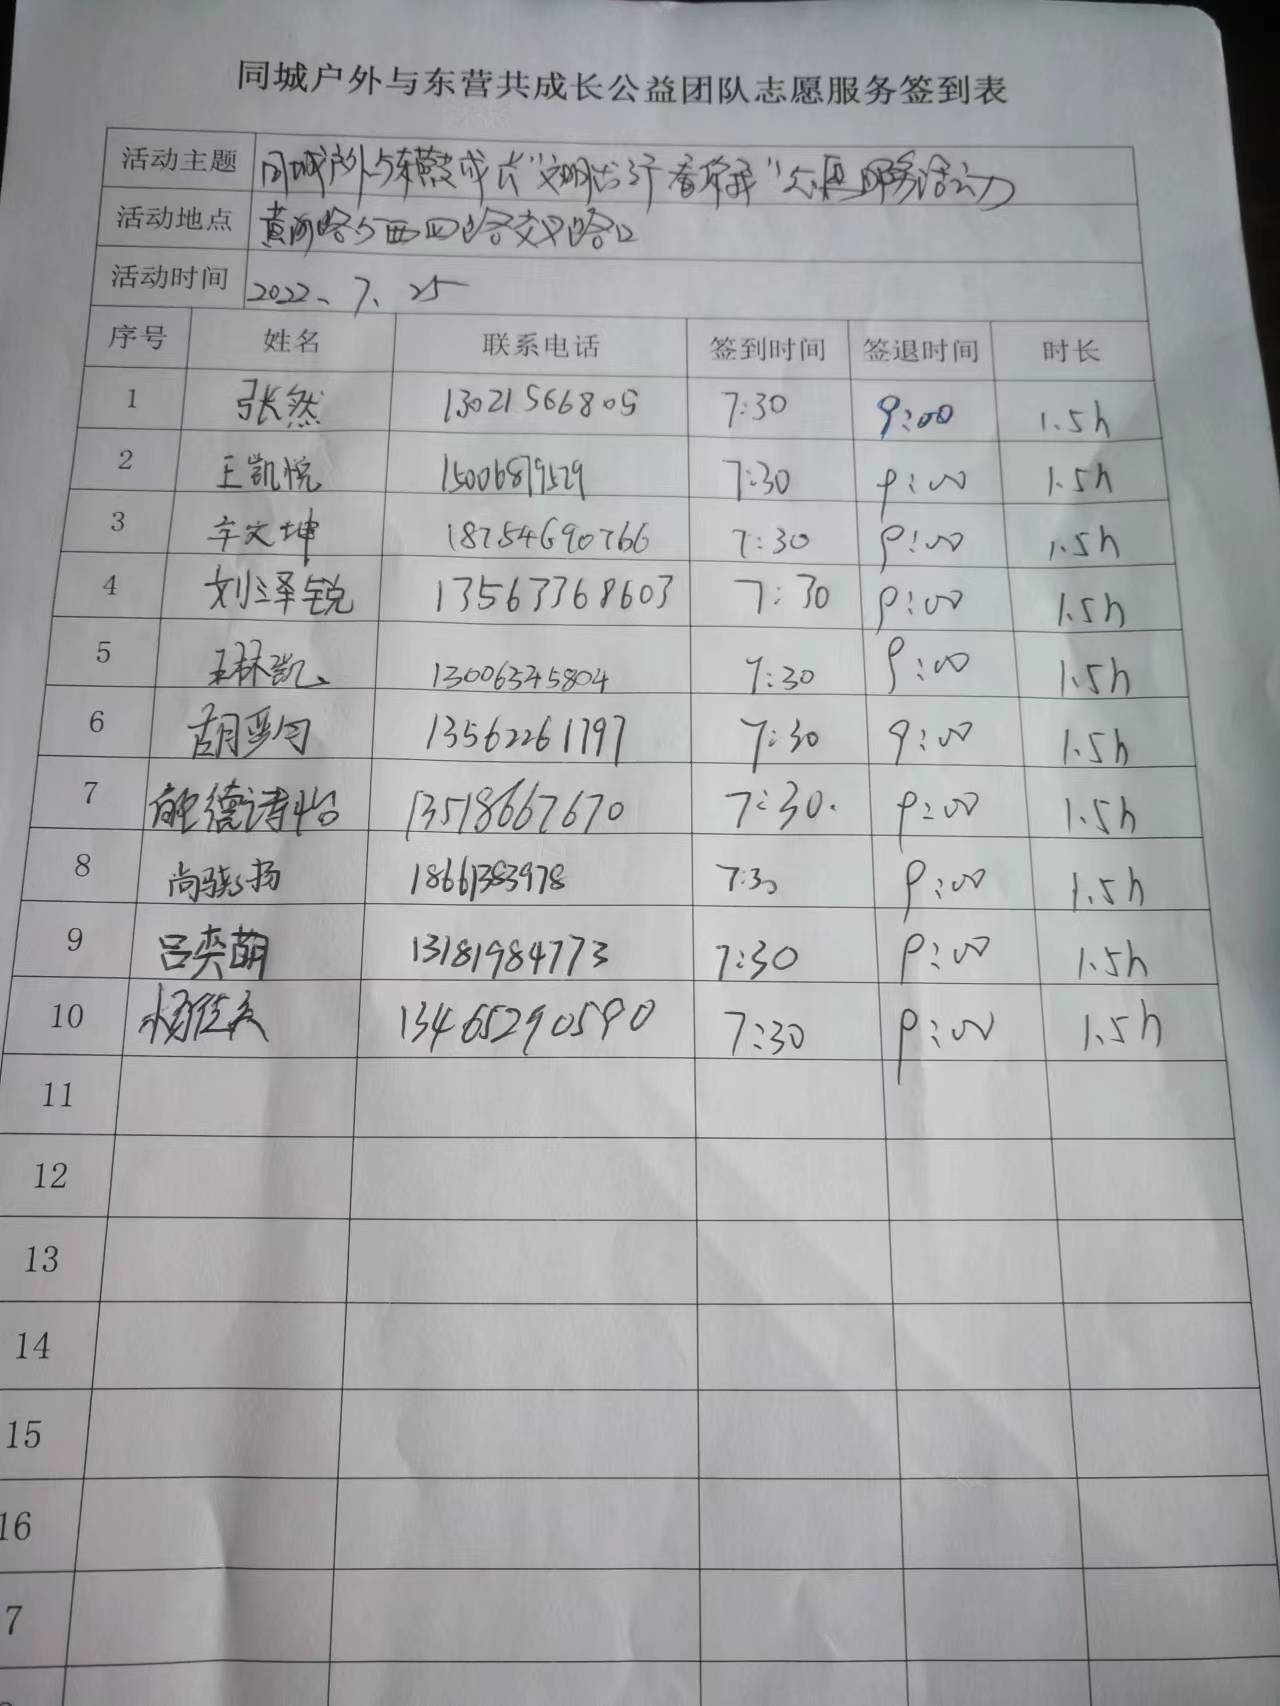 同城户外与东营共成长公益团队志愿服务签到表
活动主题 同城户外与东营共成长“文明出行看东营”志愿服务活动
活动地点 黄河路与西四路交叉路口
活动时间 2022、7、25
序号 姓名 联系电话 签到时间 签退时间 时长
1 张然 13021566805 7:30 9:00 1.5h
2 王凯悦 15006879529 7:30 9:00 1.5h
3 辛文坤 18754690766 7:30 9:00 1.5h
4 刘泽锐 13563368603 7:30 9:00 1.5h
5 王林凯 13006345804 7:30 9:00 1.5h
6 13562261797 7:30 9:00 1.5h
7 诗怡 13518667670 7:30. 9:00 1.5h
8 尚骁扬 18661383978 7:30 9:00 1.5h
9 吕奕萌 13181984773 7:30 9:00 1.5h
10 13465290590 7:30 9:00 1.5h
11
12
13
14
15
16
7